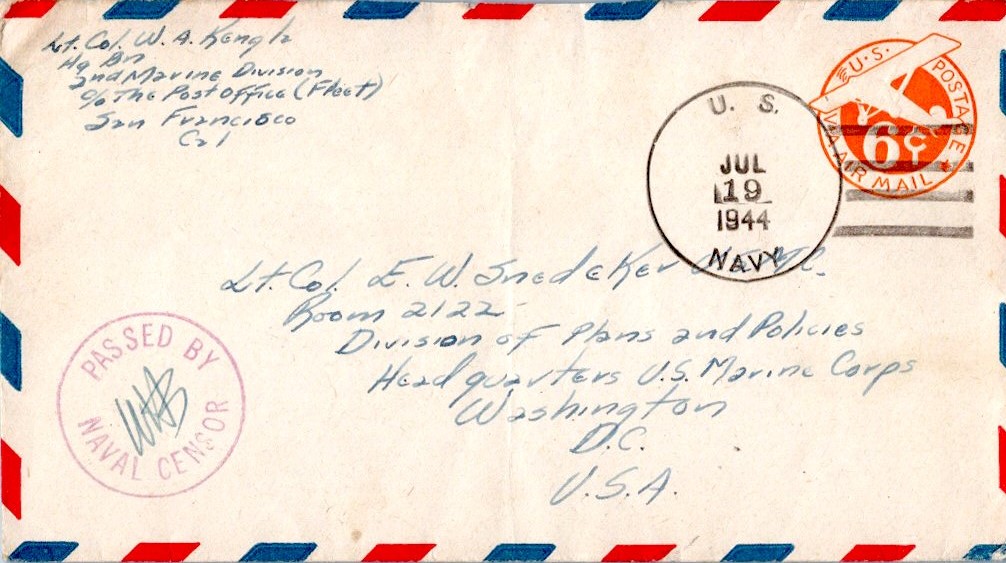 Lt. Col. W. A. Kengla
Hq Bn
2nd Marine Division
c/o The Post Office (Fleet)
San Francisco
Cal
U.S. POSTAGE
VIA AIR MAIL
6¢
U. S.
JUL
19
1944
NAVY
Lt. Col. E. W. Snedeker
Room 2122
Division of Plans and Policies
Headquarters U.S. Marine Corps
Washington
D.C.
U.S.A.
PASSED BY
NAVAL CENSOR